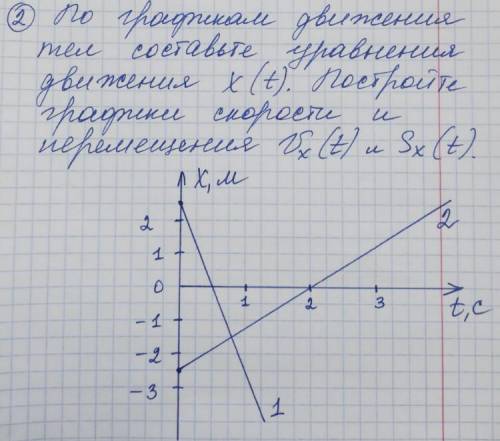 ② По графикам движения
тел составьте уравнения
движения x(t). Постройте
графики скорости и
перемещения Vx(t) и Sx(t).
X, м
2
2
1
0
1
2
3
t, с
-1
-2
-3
1